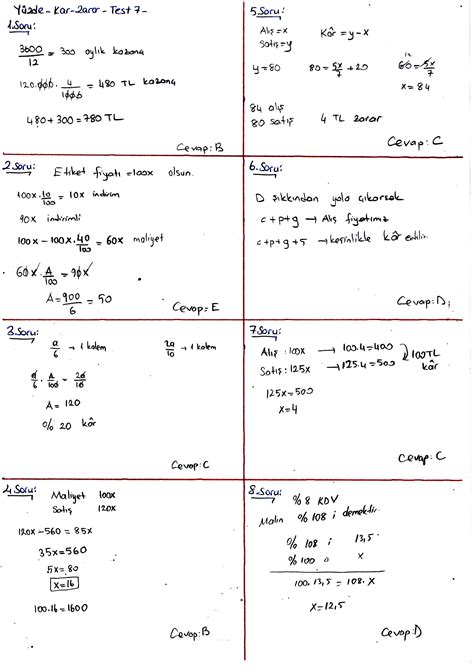 Yüzde - Kar - Zarar - Test 7 -
1.Soru:
3600/12 = 300 aylık kazanç
120.000 . 4/1000 = 480 TL kazanç
480+300=780 TL
Cevap: B
2.Soru: Etiket fiyatı=100x olsun.
100x.10/100 = 10x indirim
90x indirimli
100x-100x.40/100=60x maliyet
60x.A/100=90x
A=900/6=50
Cevap=E
3.Soru:
a/6 → 1 kalem 2a/10 → 1 kalem
a/6 . A/100 = 2a/10
A=120
%20 kâr
Cevap: C
4.Soru: Maliyet 100x
Satış 120x
120x-560=85x
35x=560
5x=80
x=16
100.16=1600
Cevap: B
5.Soru:
Alış=x
Satış=y
Kâr=y-x
y=80 80=5x/7+20 60=5x/7
12
x=84
84 alış
80 satış 4 TL zarar
Cevap: C
6.Soru:
D şıkkından yola çıkarsak
c+p+g → Alış fiyatımız
c+p+g+5 → kesinlikle kâr edilir.
Cevap: D
7.Soru:
Alış: 100x → 100.4=400
Satış: 125x → 125.4=500
100TL kâr
125x=500
x=4
Cevap: C
8.Soru: %8 KDV
Malın %108 i demektir.
%108 i 13,5
%100 ü x
100.13,5=108.x
x=12,5
Cevap: D